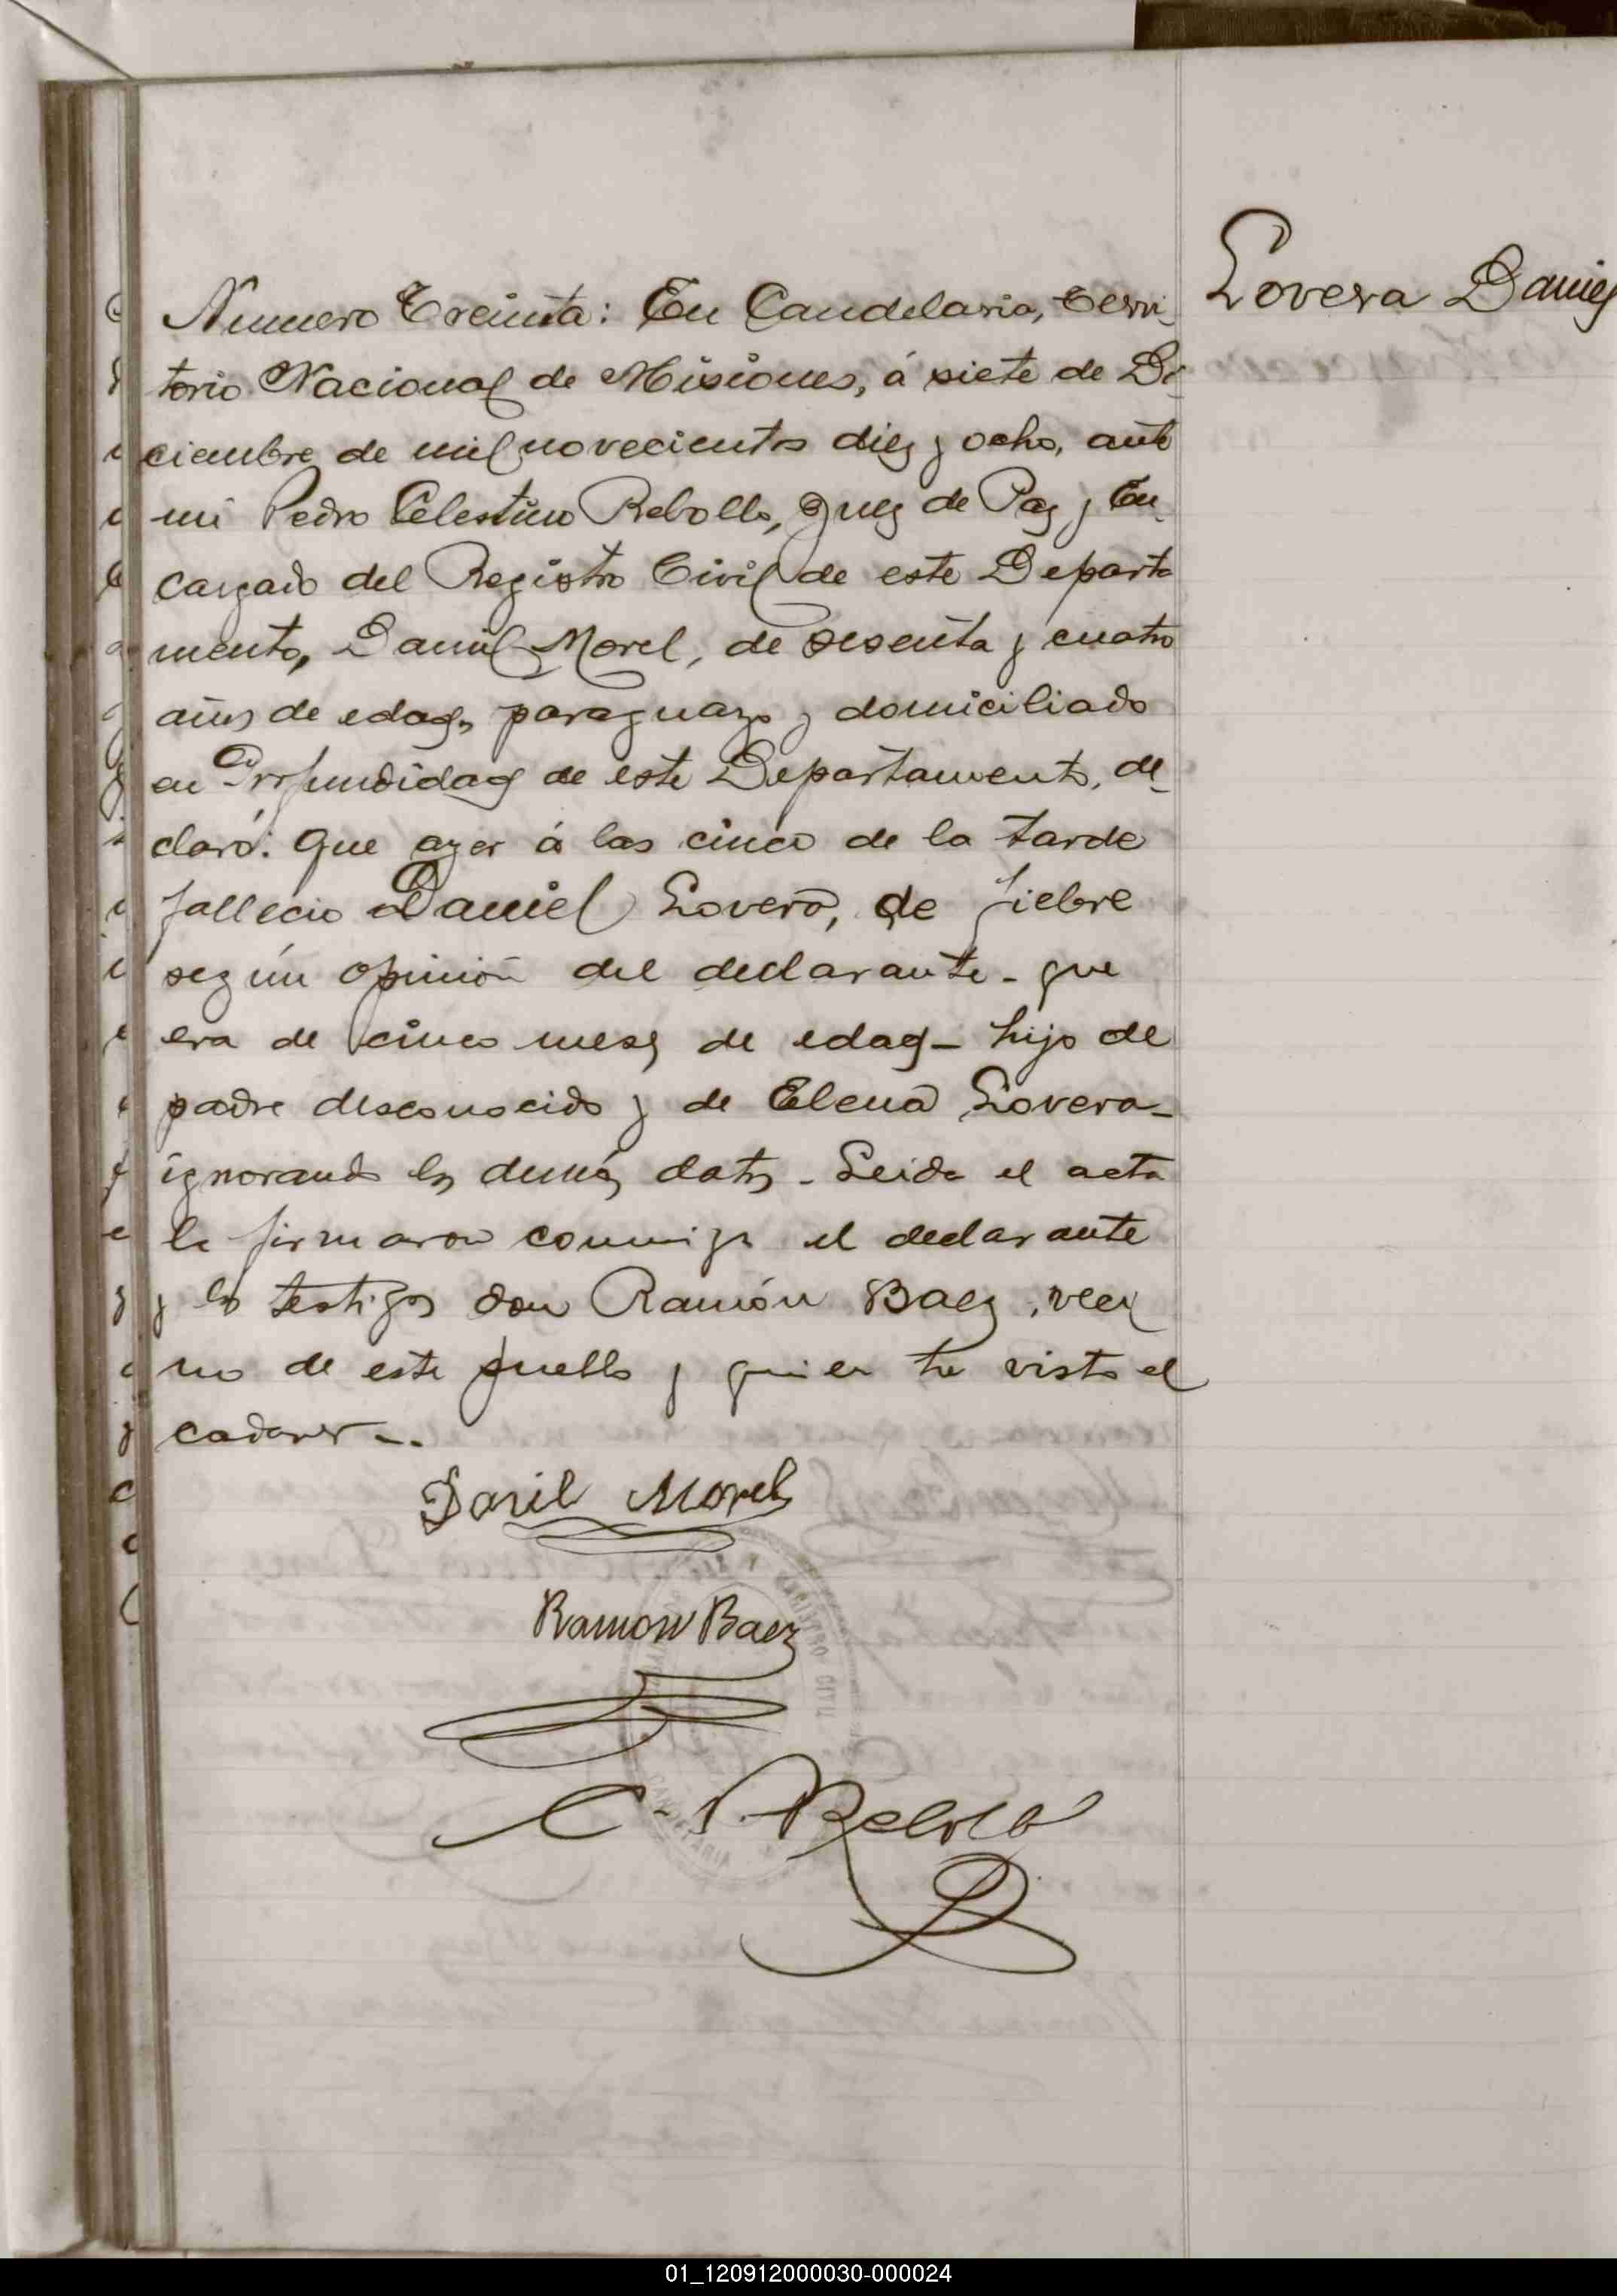 Lovera Daniel
Numero Treinta: En Candelaria, Terri-
torio Nacional de Misiones, á siete de Di-
ciembre de mil novecientos diez y ocho, ante
mi Pedro Celestino Rebollo, Juez de Paz y En-
cargado del Registro Civil de este Departa
mento, Daniel Morel, de sesenta y cuatro
años de edad, paraguayo y domiciliado
en Profundidad de este Departamento, de-
claró: Que ayer á las cinco de la tarde
fallecio Daniel Lovera, de fiebre
según opinión del declarante - que
era de cinco meses de edad - hijo de
padre desconocido y de Elena Lovera -
ignorando los demás datos - Leida el acta
la firmaron conmigo el declarante
y los testigos don Ramón Baez, veci
no de este pueblo y quien ha visto el
cadaver -.
Daniel Morel
Ramon Baez
C. Rebollo
REGISTRO CIVIL
CANDELARIA
01_120912000030-000024